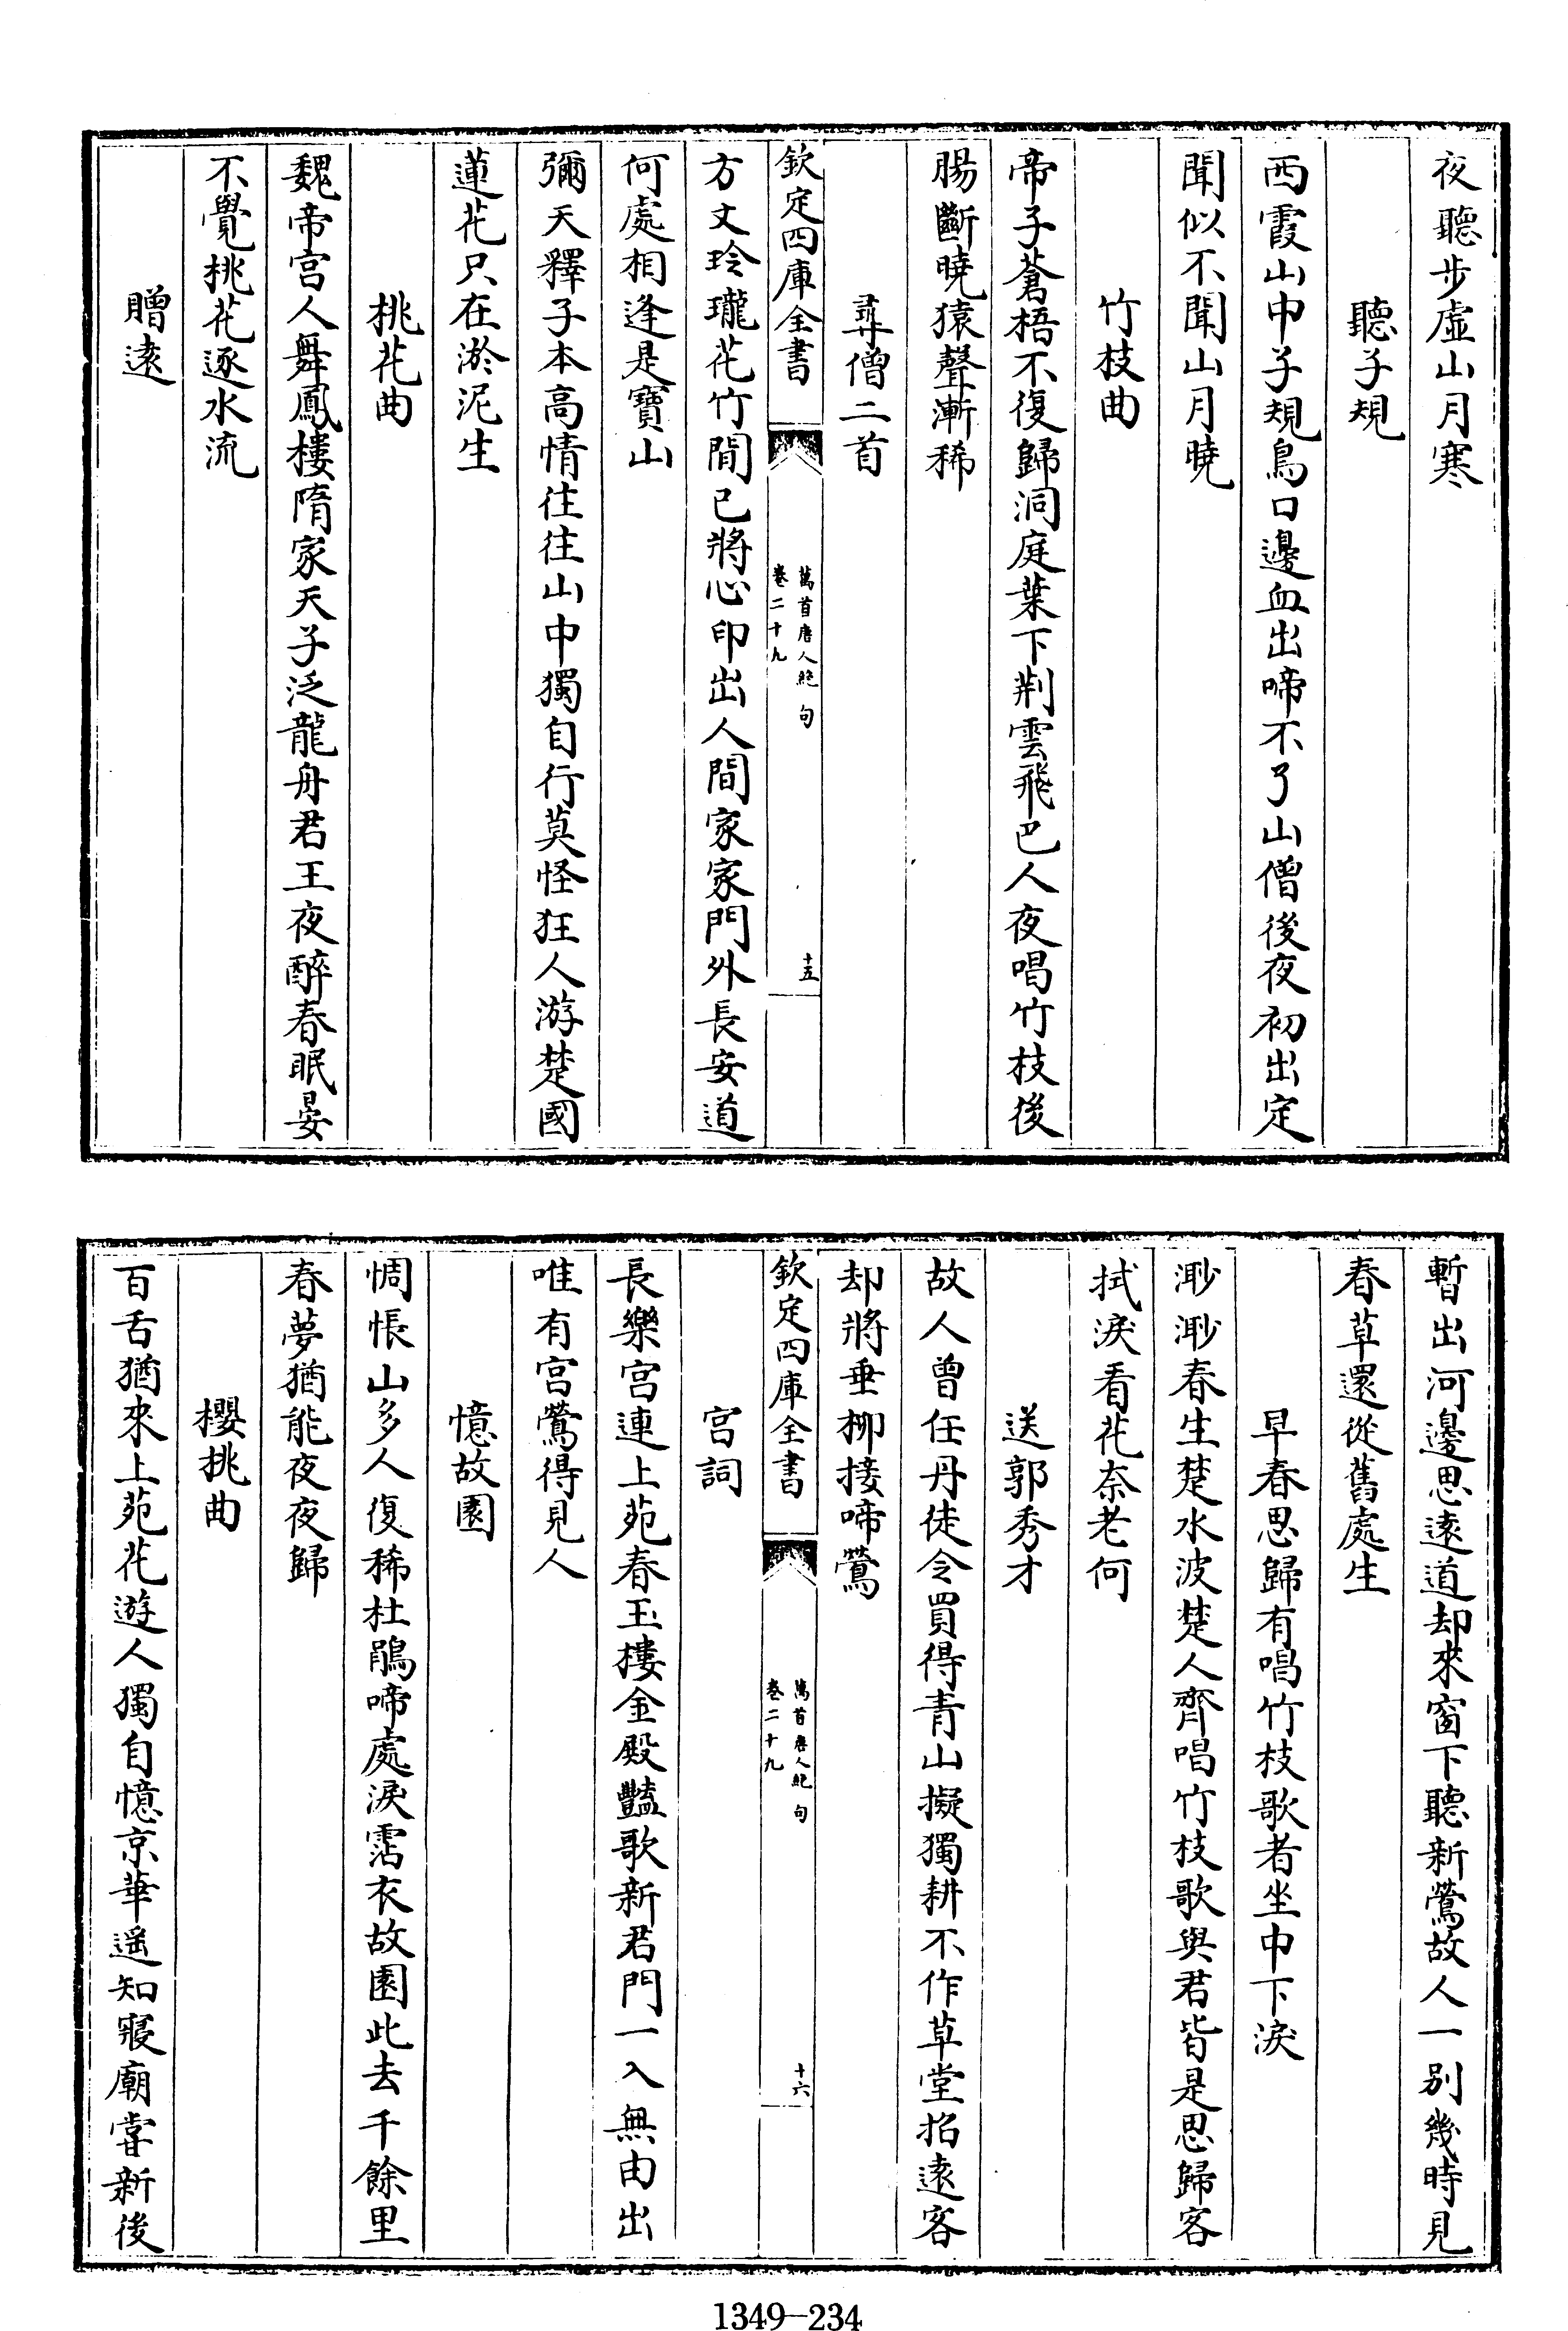 夜聽步虚山月寒
聽子規
西霞山中子規鳥口邊血出啼不了山僧後夜初出定
聞似不聞山月曉
竹枝曲
帝子蒼梧不復歸洞庭葉下荆雲飛巴人夜唱竹枝後
腸斷曉猿聲漸稀
尋僧二首
欽定四庫全書
萬首唐人絶句
卷二十九
十五
方丈玲瓏花竹間已將心印出人間家家門外長安道
何處相逢是寶山
彌天釋子本高情往往山中獨自行莫怪狂人游楚國
蓮花只在淤泥生
桃花曲
魏帝宫人舞鳳樓隋家天子泛龍舟君王夜醉春眠晏
不覺桃花逐水流
贈遠
暫出河邊思遠道却來窗下聽新鶯故人一别幾時見
春草還從舊處生
早春思歸有唱竹枝歌者坐中下淚
渺渺春生楚水波楚人齊唱竹枝歌與君皆是思歸客
拭淚看花奈老何
送郭秀才
故人曾任丹徒令買得青山擬獨耕不作草堂招遠客
却將垂柳接啼鶯
欽定四庫全書
萬首唐人絶句
卷二十九
十六
宫詞
長樂宫連上苑春玉樓金殿豔歌新君門一入無由出
唯有宫鶯得見人
憶故園
惆悵山多人復稀杜鵑啼處淚霑衣故園此去千餘里
春夢猶能夜夜歸
櫻桃曲
百舌猶來上苑花遊人獨自憶京華遥知寢廟嘗新後
1349-234